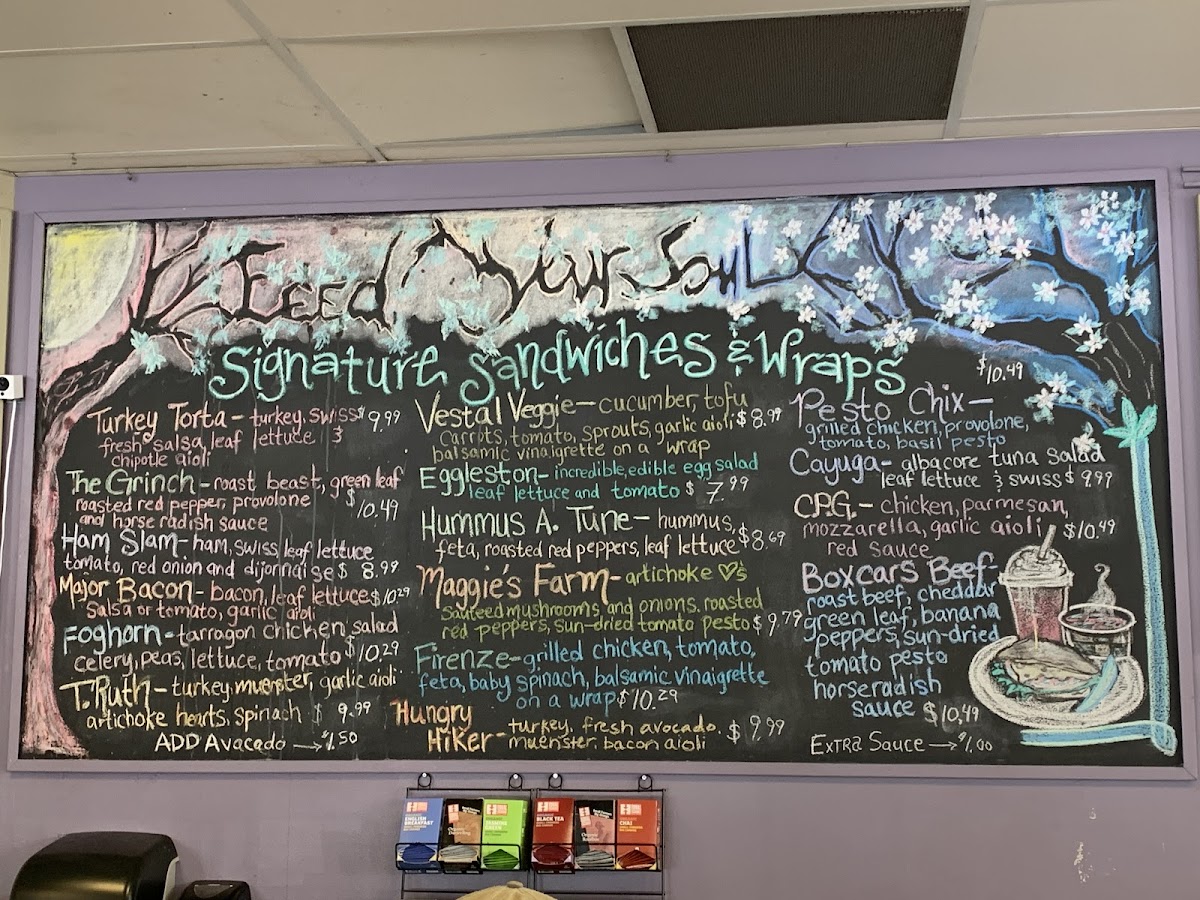 Feed Your Soul
Signature Sandwiches & Wraps
Turkey Torta - turkey, swiss $9.99
fresh salsa, leaf lettuce &
chipotle aioli
The Grinch - roast beast, green leaf
roasted red pepper, provolone $10.49
and horse radish sauce
Ham Slam - ham, swiss, leaf lettuce
tomato, red onion and dijonnaise $8.99
Major Bacon - bacon, leaf lettuce $10.29
salsa or tomato, garlic aioli
Foghorn - tarragon chicken salad
celery, peas, lettuce, tomato $10.29
T. Ruth - turkey, muenster, garlic aioli
artichoke hearts, spinach $9.99
ADD Avacado → $1.50
Vestal Veggie - cucumber, tofu
carrots, tomato, sprouts, garlic aioli $8.99
balsamic vinaigrette on a wrap
Eggleston - incredible, edible egg salad
leaf lettuce and tomato $7.99
Hummus A. Tune - hummus,
feta, roasted red peppers, leaf lettuce $8.69
Maggie's Farm - artichoke ♡'s
sauteed mushrooms and onions, roasted
red peppers, sun-dried tomato pesto $9.79
Firenze - grilled chicken, tomato,
feta, baby spinach, balsamic vinaigrette
on a wrap $10.29
Hungry
Hiker - turkey, fresh avocado, $9.99
muenster, bacon aioli
$10.49
Pesto Chix -
grilled chicken, provolone,
tomato, basil pesto
Cayuga - albacore tuna salad
leaf lettuce & swiss $9.99
C.P.G. - chicken, parmesan,
mozzarella, garlic aioli $10.49
red sauce
Boxcars Beef -
roast beef, cheddar
green leaf, banana
peppers, sun-dried
tomato pesto
horseradish
sauce $10.49
Extra Sauce → $1.00
ENGLISH
BREAKFAST
BLACK TEA
CHAI